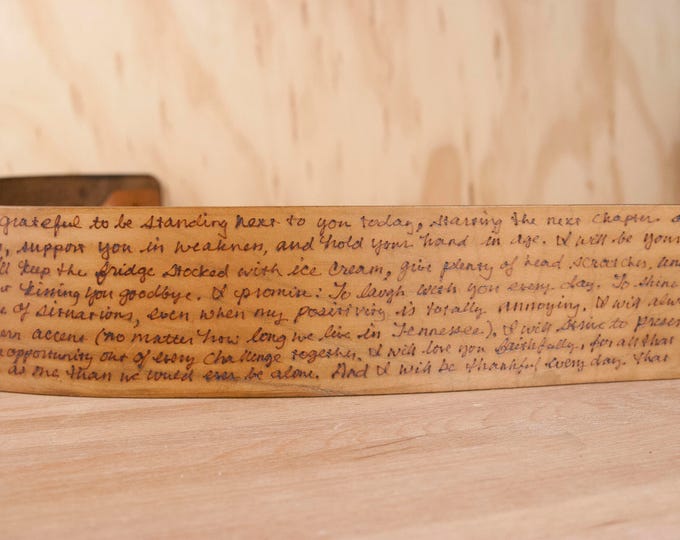 grateful to be standing next to you today, starting the next chapter.
support you in weakness, and hold your hand in age. I will be your
keep the fridge stocked with ice cream, give plenty of head scratches, and
kissing you goodbye. I promise: To laugh with you every day. To shine
of situations, even when my positivity is totally annoying. I will alw
ern accent (no matter how long we live in Tennessee). I will strive to preser
opportunity out of every challenge together. I will love you faithfully, for all that
as one than we would ever be alone. And I will be thankful every day. that